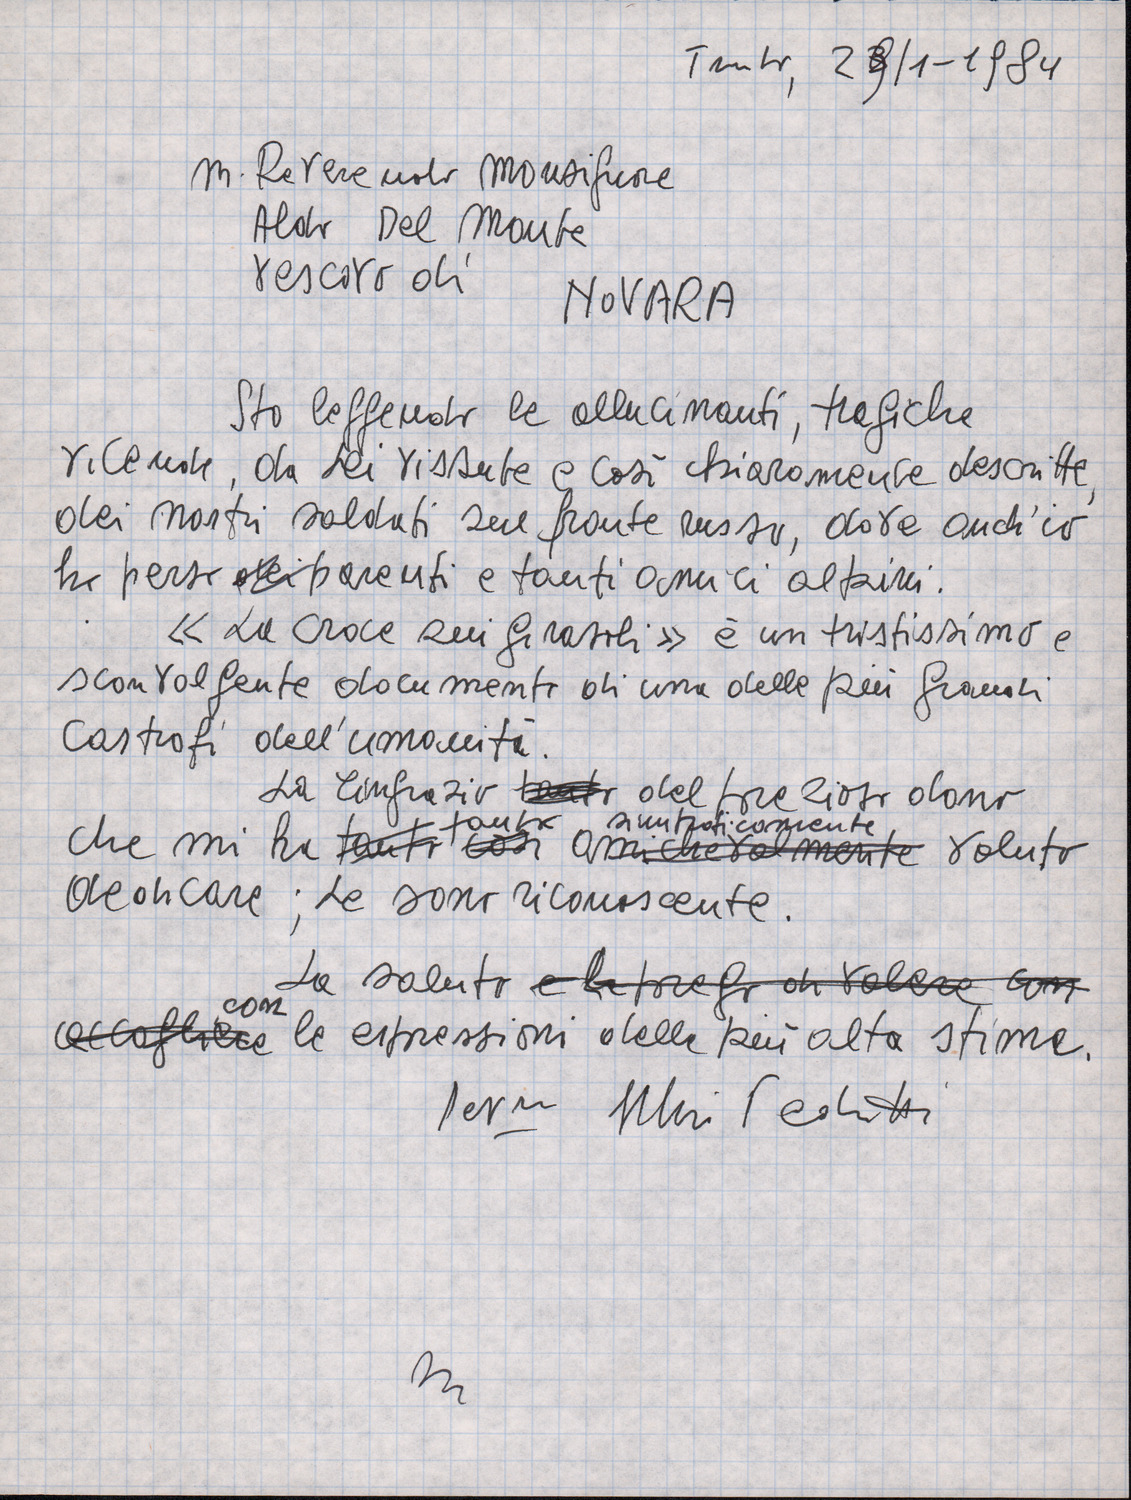 Trento, 29/1-1984
M. Reverendo Monsignore
Aldo Del Monte
Vescovo di
NOVARA
Sto leggendo le allucinanti, tragiche
vicende, da Lei vissute e così chiaramente descritte,
dei nostri soldati sul fronte russo, dove anch'io
ho perso dei parenti e tanti amici alpini.
« La Croce sui girasoli » è un tristissimo e
sconvolgente documento di una delle più grandi
Castrofi dell'umanità.
La ringrazio tanto del prezioso dono
tanto simpaticamente
che mi ha tanto così amichevolmente voluto
dedicare ; Le sono riconoscente.
La saluto e la prego di volere con
con
accogliere le espressioni della più alta stima.
Dev.mo Pedrotti